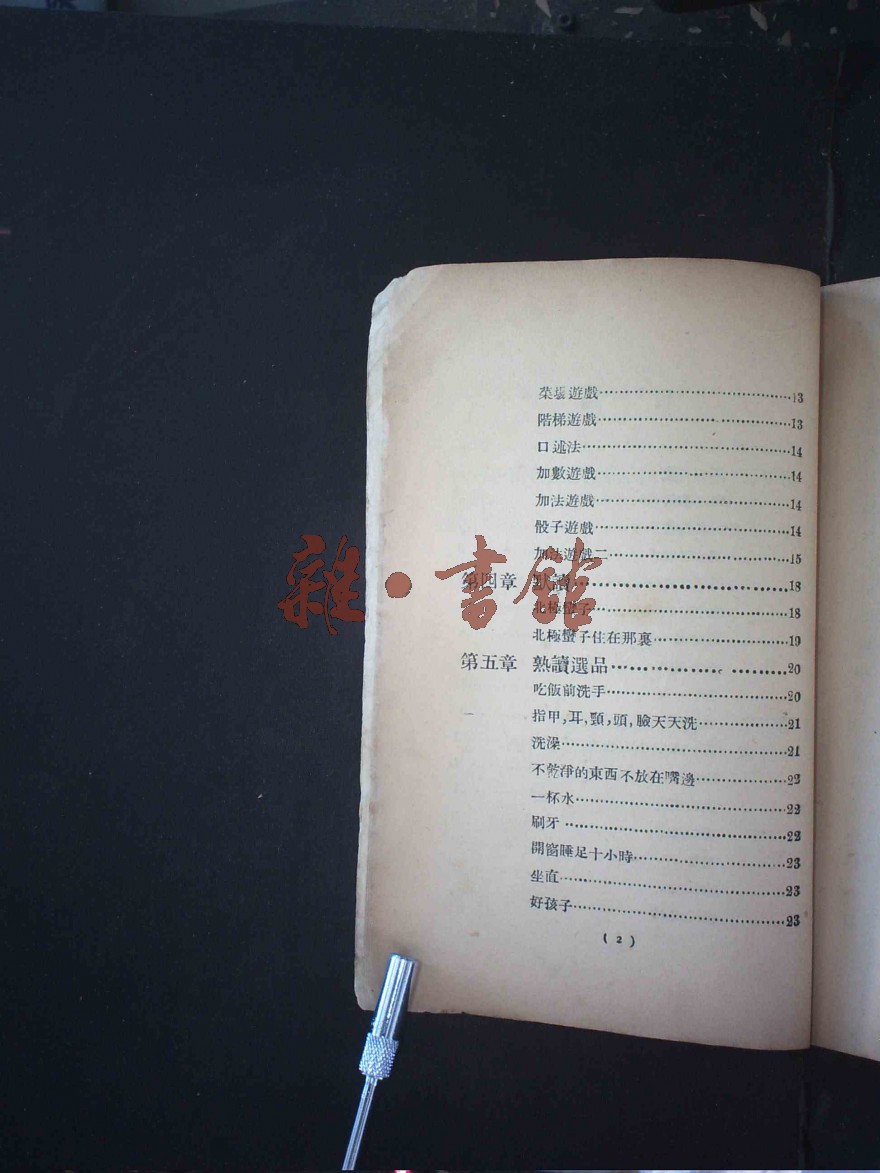 菜場遊戲……………………………13
階梯遊戲……………………………13
口述法………………………………14
加數遊戲……………………………14
加法遊戲……………………………14
骰子遊戲……………………………14
加法遊戲二…………………………15
第四章 默讀………………………18
北極蠻子……………………………18
北極蠻子住在那裏…………………19
第五章 熟讀選品…………………20
吃飯前洗手…………………………20
指甲,耳,頸,頭,臉天天洗…………21
洗澡…………………………………21
不乾淨的東西不放在嘴邊…………22
一杯水………………………………22
刷牙…………………………………22
開窗睡足十小時……………………23
坐直…………………………………23
好孩子………………………………23
( 2 )
雜·書館